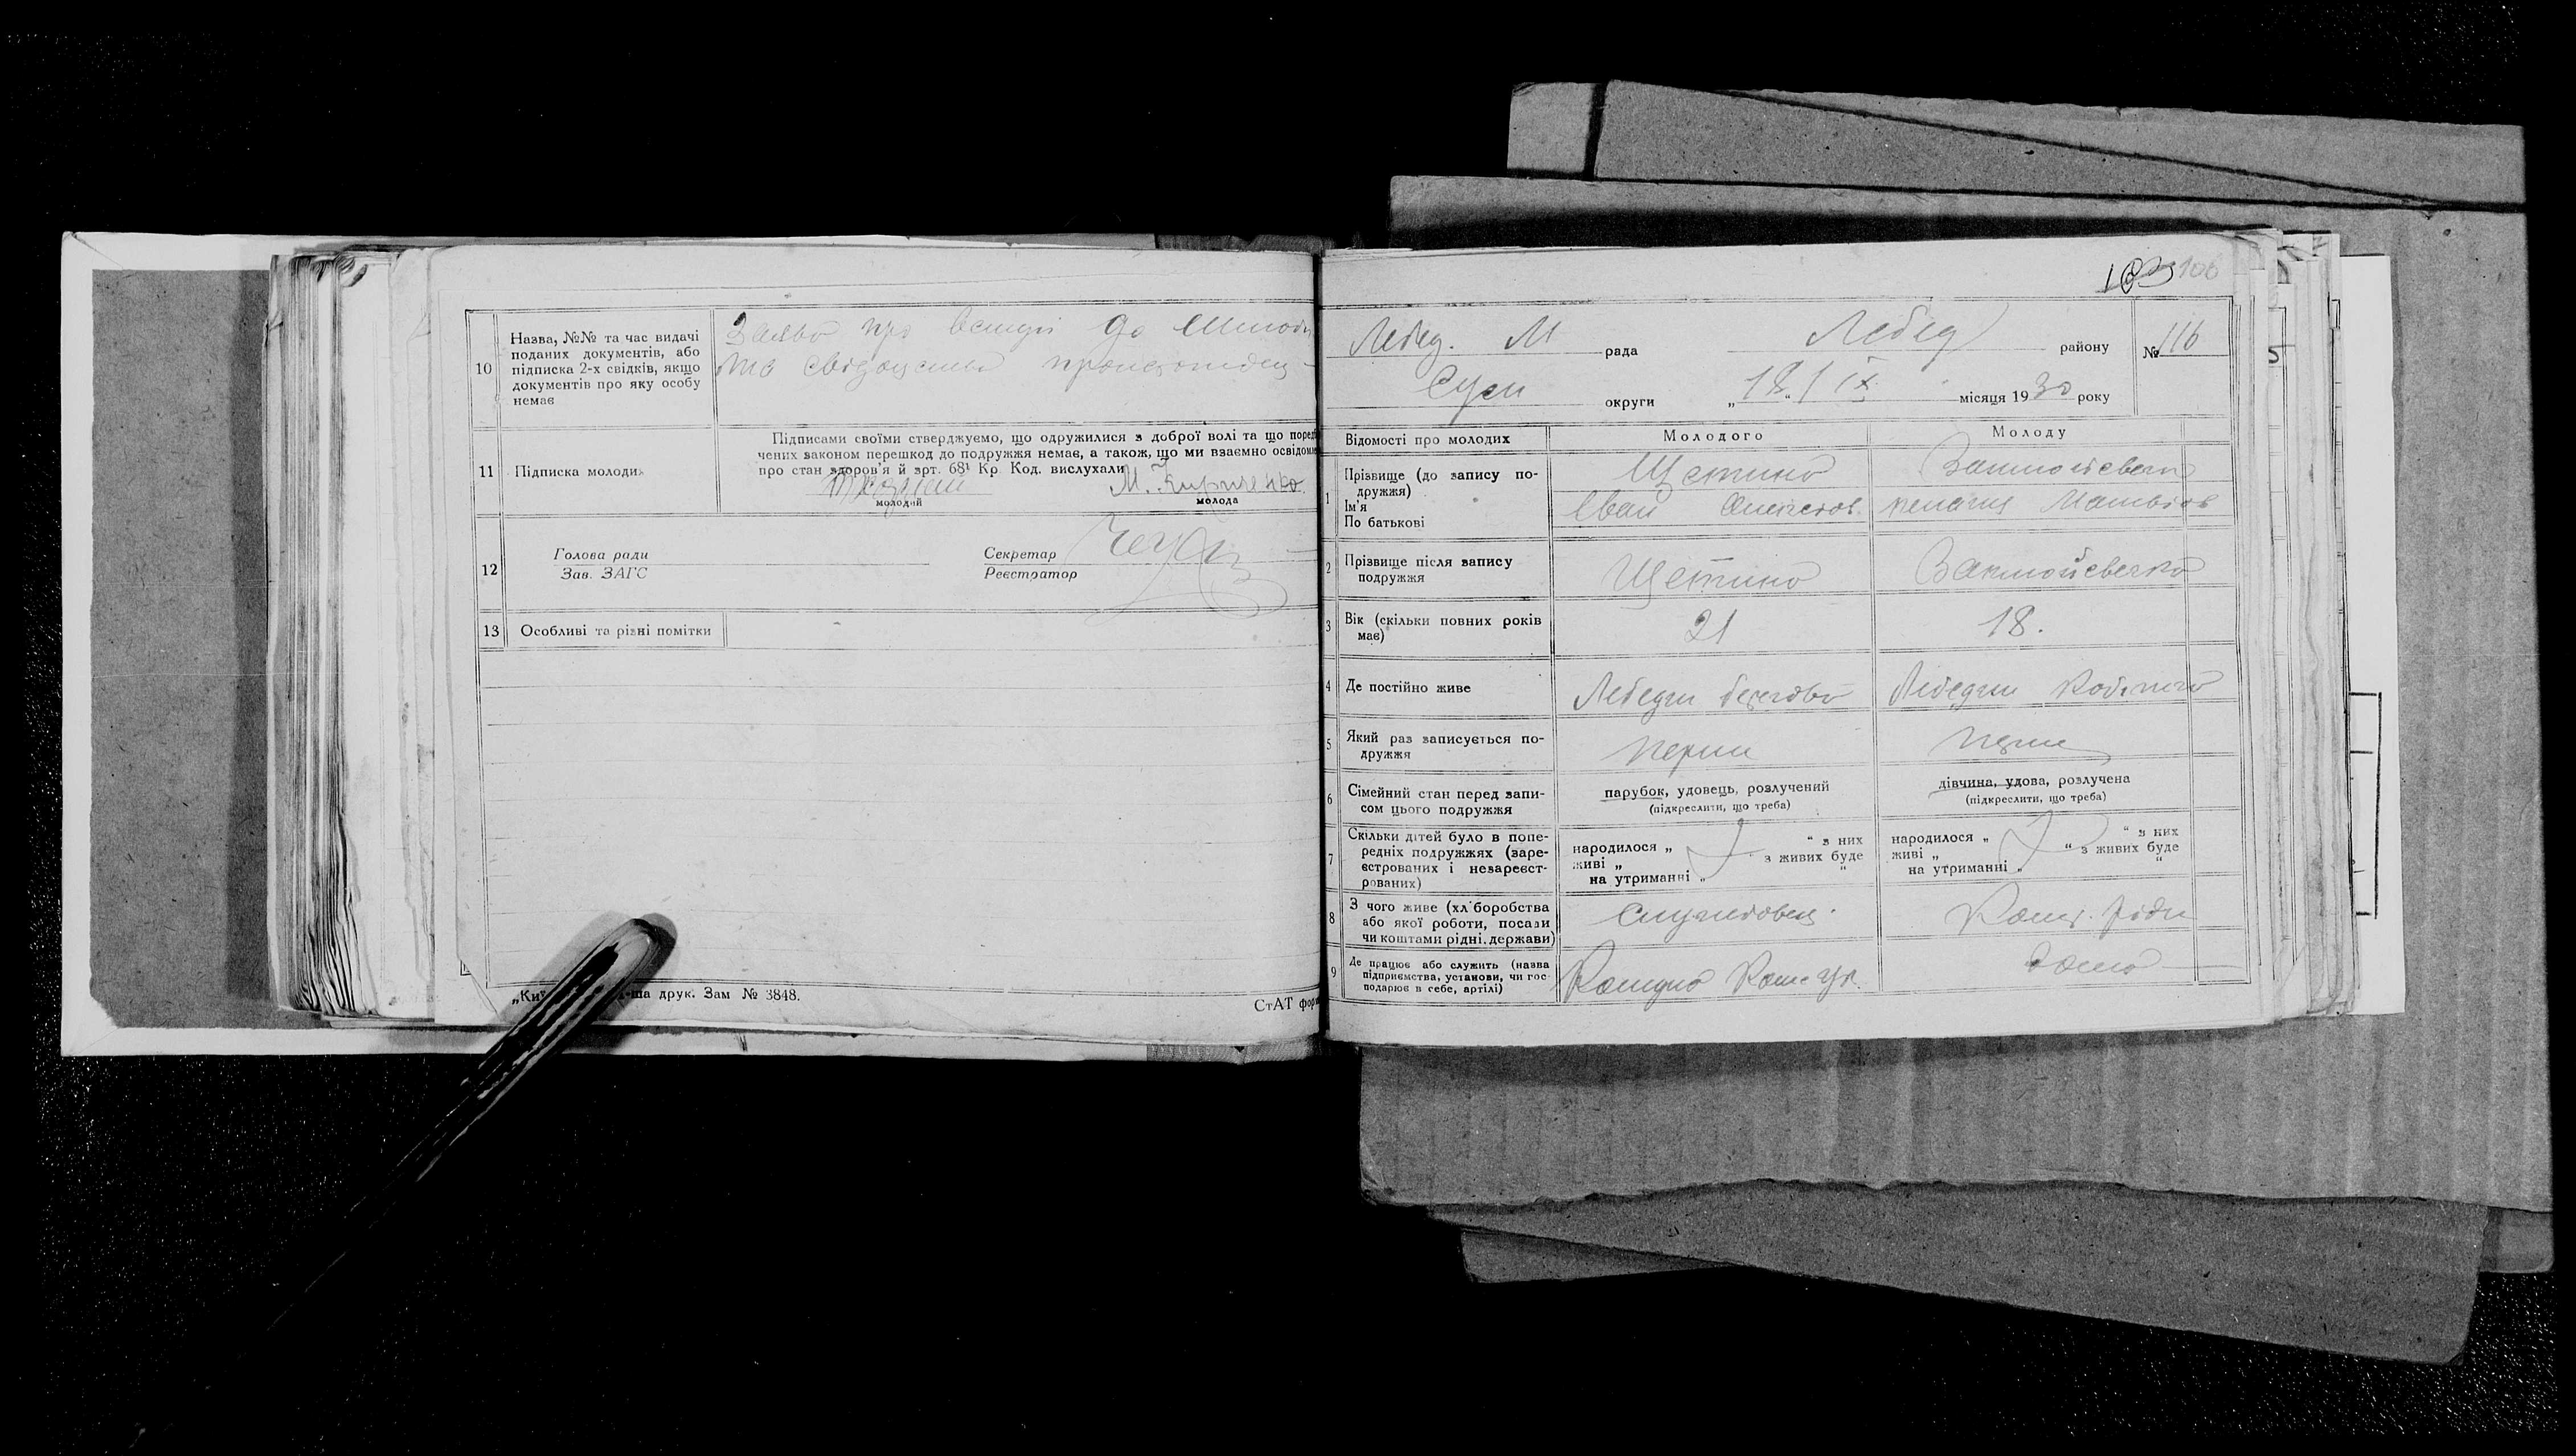 10
Назва, №№ та час видачі
поданих документів, або
підписка 2-х свідків, якщо
документів про яку особу
немає
Заява про вступ до
та
11
Підписка молодих
Підписами своїми стверджуємо, що одружилися з доброї волі та що перед
чених законом перешкод до подружжя немає, а також, що ми взаємно освідом
про стан здоров'я й зрт. 68¹ Кр. Код. вислухали
М. Кириченко
молодий
молода
12
Голова ради
Зав. ЗАГС
Секретар
Реєстратор
13
Особливі та різні помітки
ша друк. Зам № 3848.
СтАТ фор
103 106
Лебед. М рада
Лебед району
№ 116
Сум округи
„18“ IX місяця 1930 року
Відомості про молодих
Молодого
Молоду
1
Прізвище (до запису по-
дружжя)
Ім'я
По батькові
Щетина
Іван Олексієв.
2
Прізвище після запису
подружжя
Щетина
3
Вік (скільки повних років
має)
21
18.
4
Де постійно живе
Лебедин
Лебедин
5
Який раз записується по-
дружжя
перш
перш
6
Сімейний стан перед запи-
сом цього подружжя
парубок, удовець, розлучений
(підкреслити, що треба)
дівчина, удова, розлучена
(підкреслити, що треба)
7
Скільки дітей було в попе-
редніх подружжях (заре-
єстрованих і незареєст-
рованих)
народилося „ “ з них
живі „ “ з живих буде
на утриманні „ “
народилося „ “ з них
живі „ “ з живих буде
на утриманні „ “
8
З чого живе (хліборобства
або якої роботи, посади
чи коштами рідні, держави)
службовец.
Кошт. рідн
9
Де працює або служить (назва
підприємства, установи, чи гос-
подарює в себе, артілі)
дома